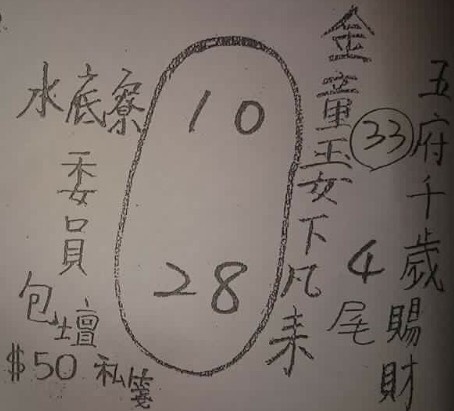 五府千歲賜財
33
4尾
金童玉女下凡來
10
28
水底寮
委員
包壇
$50 私箋